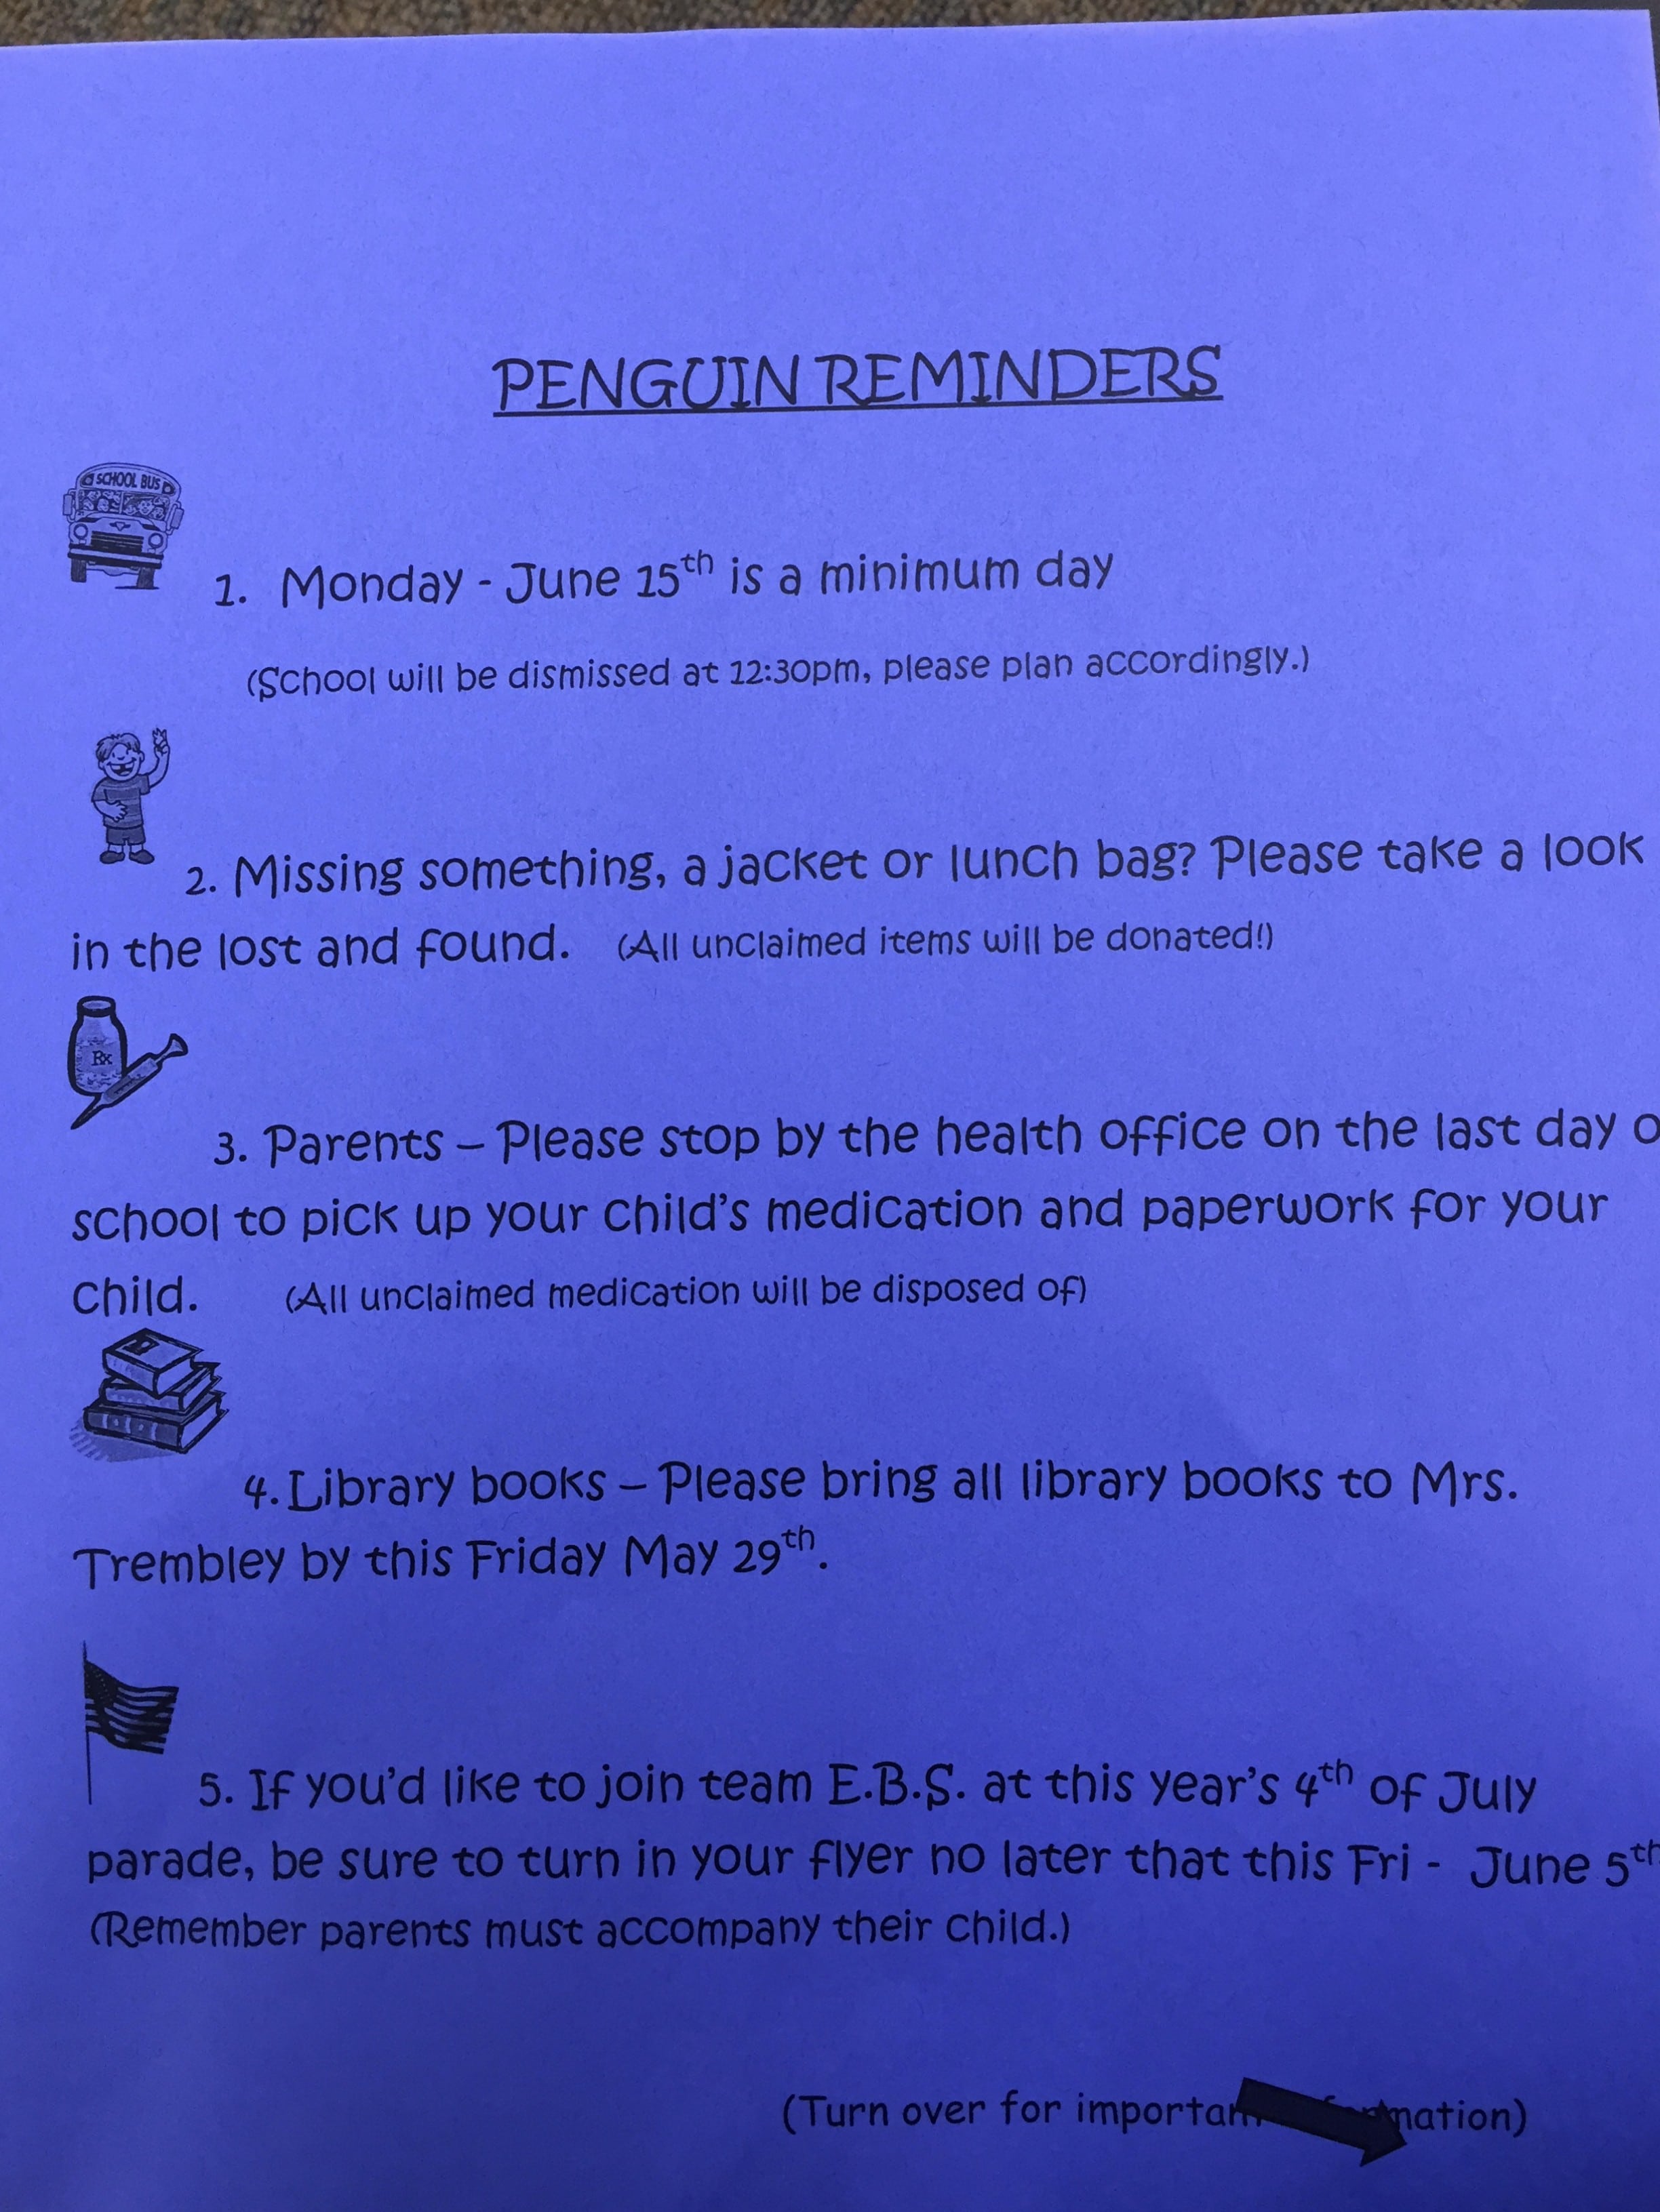 PENGUIN REMINDERS
SCHOOL BUS
1. Monday - June 15th is a minimum day
(School will be dismissed at 12:30pm, please plan accordingly.)
2. Missing something, a jacket or lunch bag? Please take a look
in the lost and found. (All unclaimed items will be donated!)
Rx
3. Parents – Please stop by the health office on the last day o
school to pick up your child's medication and paperwork for your
child. (All unclaimed medication will be disposed of)
4. Library books – Please bring all library books to Mrs.
Trembley by this Friday May 29th.
5. If you'd like to join team E.B.S. at this year's 4th of July
parade, be sure to turn in your flyer no later that this Fri - June 5th
(Remember parents must accompany their child.)
(Turn over for